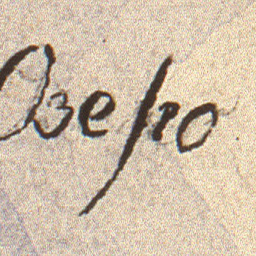 Озеро